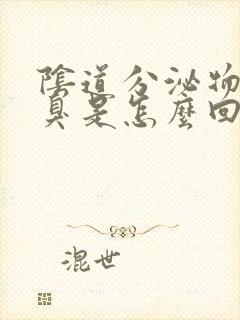 陰道分泌物
臭是怎麼回
混世